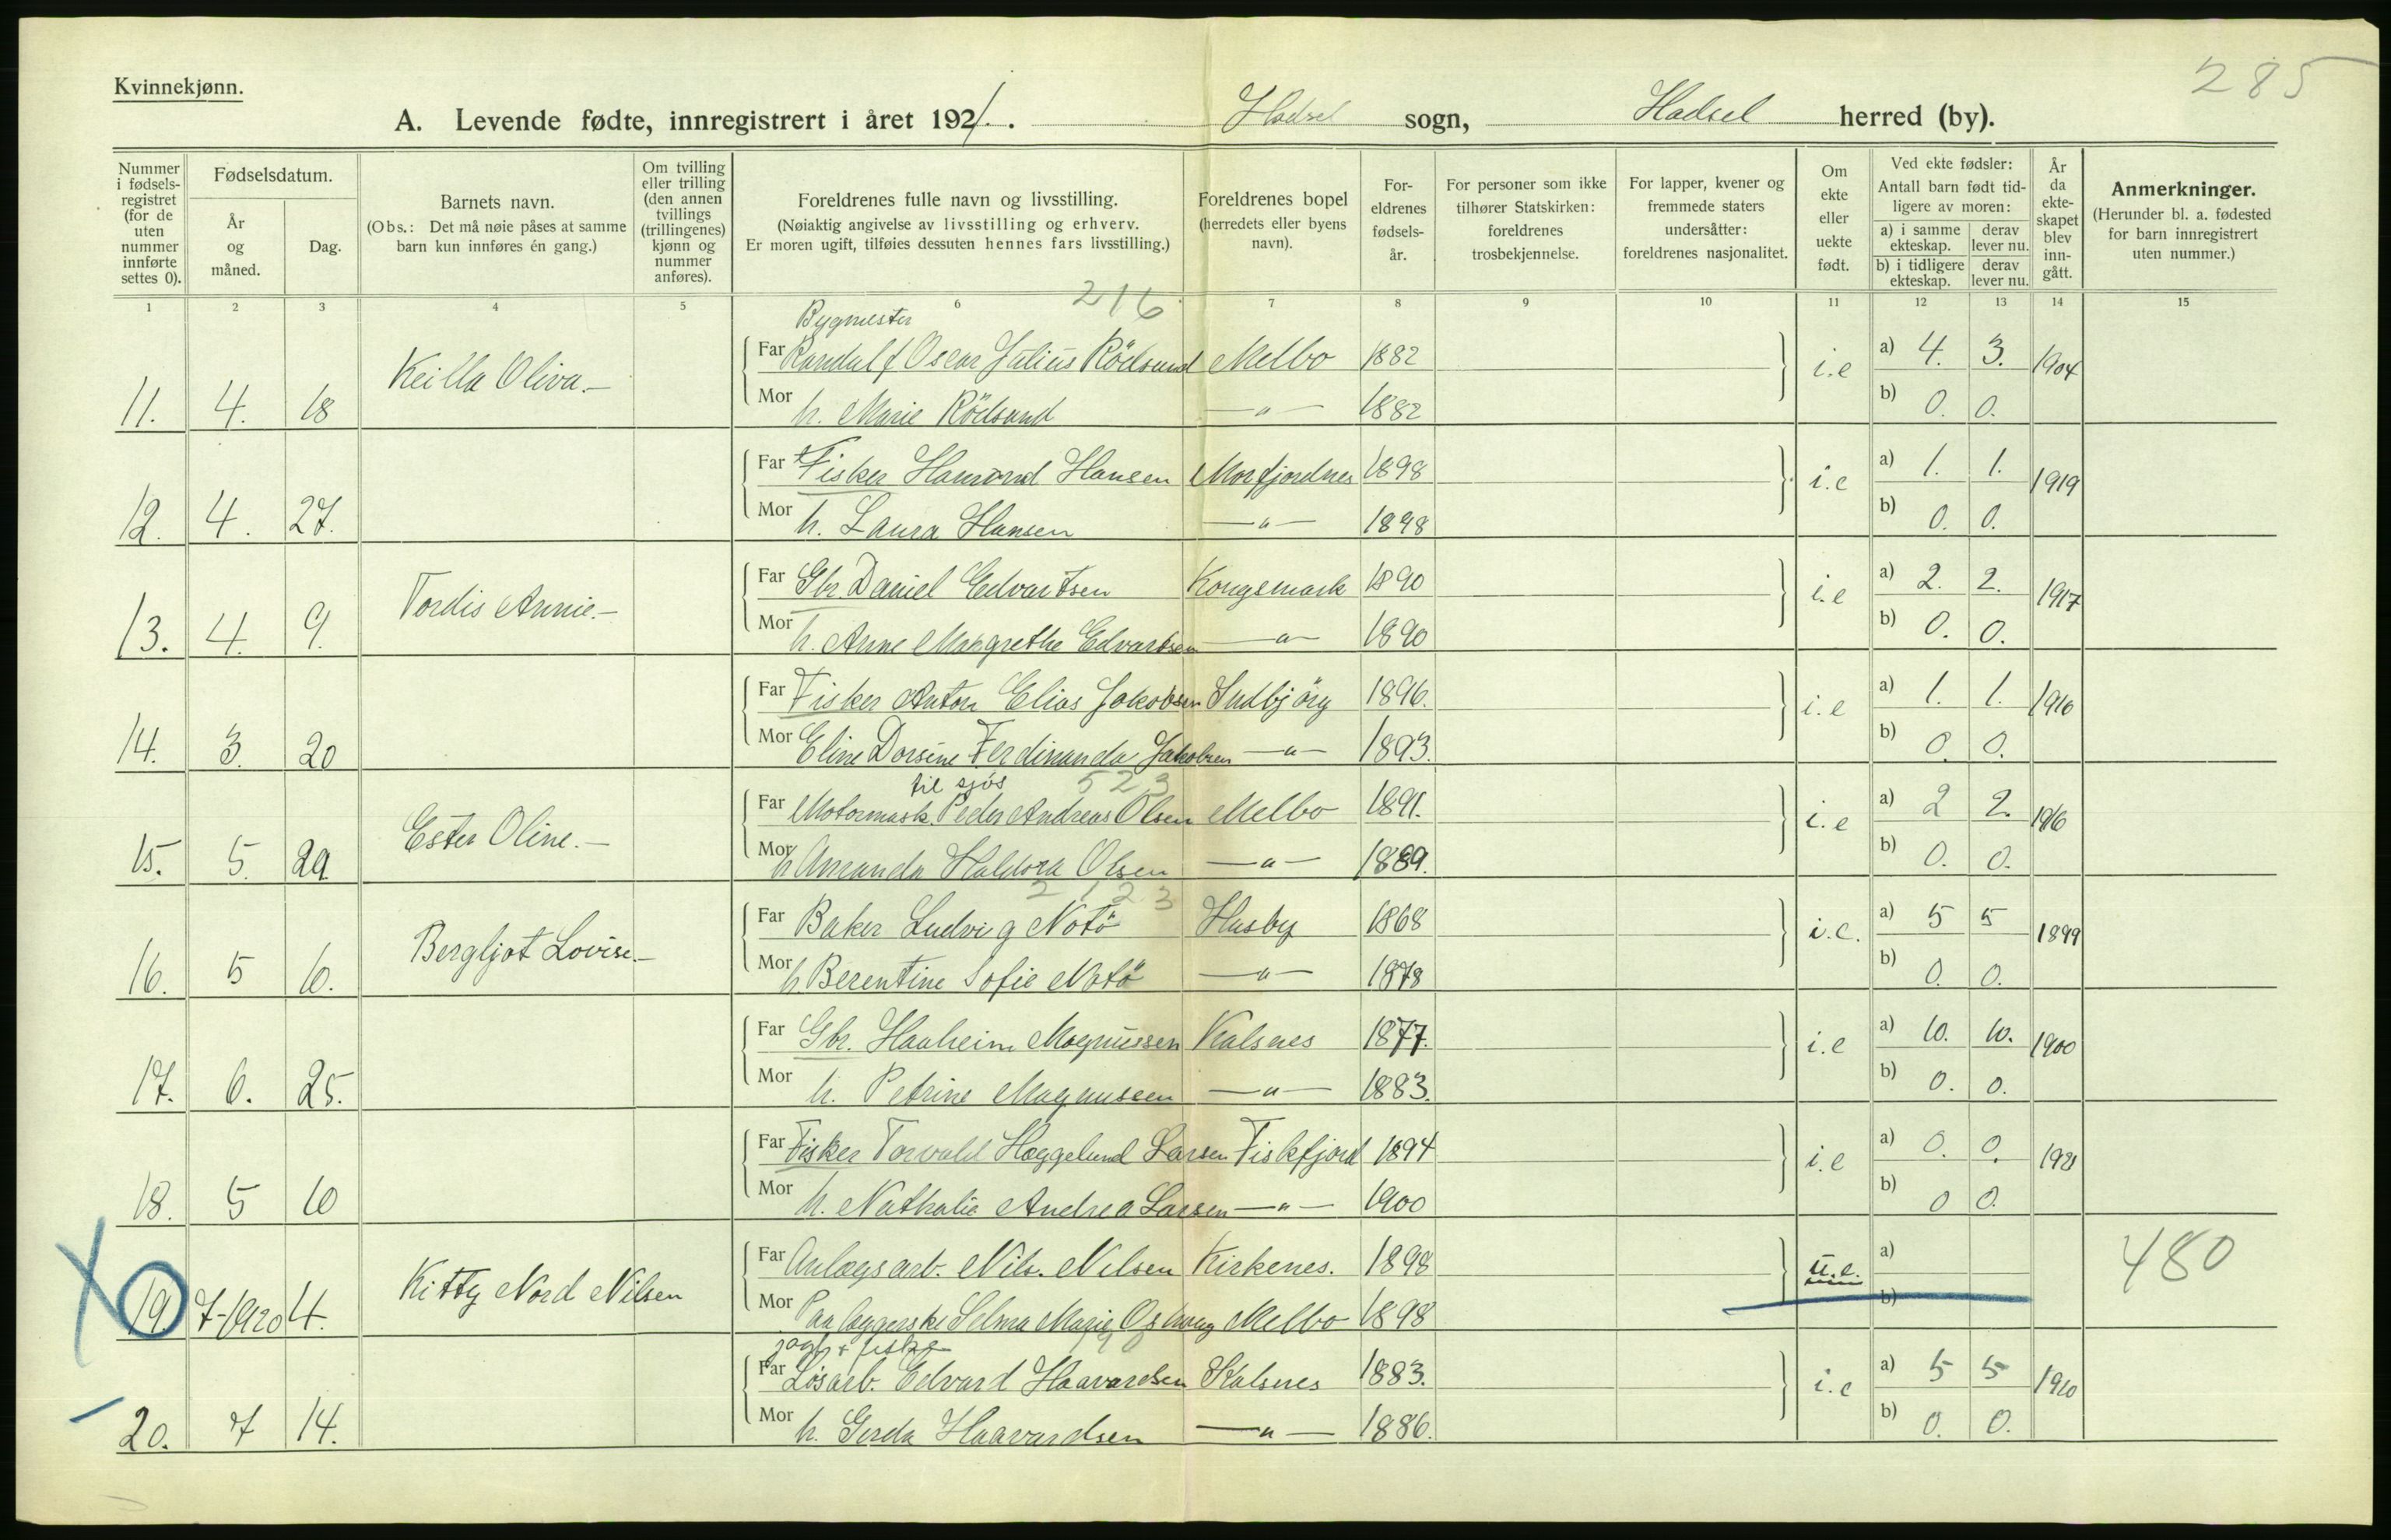 285
Kvinnekjønn.
A. Levende fødte, innregistrert i året 1921. Hadsel sogn, Hadsel herred (by).
Nummer i fødselsregistret (for de uten nummer innførte settes 0).
Fødselsdatum.
År og måned.
Dag.
Barnets navn.
(Obs.: Det må nøie påses at samme barn kun innføres én gang.)
Om tvilling eller trilling (den annen tvillings (trillingenes) kjønn og nummer anføres).
Foreldrenes fulle navn og livsstilling.
(Nøiaktig angivelse av livsstilling og erhverv.
Er moren ugift, tilføies dessuten hennes fars livsstilling.)
Foreldrenes bopel (herredets eller byens navn).
Foreldrenes fødselsår.
For personer som ikke tilhører Statskirken: foreldrenes trosbekjennelse.
For lapper, kvener og fremmede staters undersåtter: foreldrenes nasjonalitet.
Om ekte eller uekte født.
Ved ekte fødsler:
Antall barn født tidligere av moren:
a) i samme ekteskap. derav lever nu.
b) i tidligere ekteskap. derav lever nu.
År da ekteskapet blev inngått.
Anmerkninger.
(Herunder bl. a. fødested for barn innregistrert uten nummer.)
1 2 3 4 5 6 7 8 9 10 11 12 13 14 15
216
Bygmester
11. 4. 18 Keilla Oliva.— Far Randulf Oscar Julius Rödsand Melbo 1882 i.e a) 4. 3. 1904
Mor h. Marie Rödsand —"— 1882 b) 0. 0.
12. 4. 27. Far Fisker Hansen Morfjordnes 1898 i.e a) 1. 1. 1919
Mor h. Laura Hansen —"— 1898 b) 0. 0.
13. 4. 9. Tordis Annie.— Far Gbr. Daniel Edvartsen Kongsmark 1890 i.e a) 2. 2. 1917
Mor h. Anne Margrethe Edvartsen —"— 1890 b) 0. 0.
14. 3. 20 Far Fisker Anton Elias Jakobsen 1896. i.e a) 1. 1. 1916
Mor Eline Dorsine Ferdinanda Jakobsen —"— 1893. b) 0. 0.
til sjøs 523
15. 5. 29 Ester Oline.— Far Motormask. Peder Andreas Olsen Melbo 1891. i.e a) 2 2. 1916
Mor h Amanda Haldora Olsen —"— 1889. b) 0. 0.
2 1 2 3
16. 5 10. Bergljot Lovise.— Far Baker Ludvig Notö Husby 1868 i.e. a) 5 5 1899
Mor h. Berentine Sofie Notö —"— 1878 b) 0. 0.
17. 6. 25. Far Gbr. Haaheim Magnussen Kalsnes 1877. i.e a) 10. 10. 1900
Mor h. Petrine Magnussen —"— 1883. b) 0. 0.
18. 5 10 Far Fisker Torvald Hæggelund Larsen Fiskfjord 1894 i.e a) 0. 0. 1921
Mor h. Nathalie Andrea Larsen —"— 1900 b) 0 0.
19. 7-1920 4. Kitty Nord Nilsen Far Anlægsarb. Nils. Nilsen Kirkenes. 1898 u.e. a) 480
Mor Paalæggerske Selma Marie Melbo 1898 b)
jagt & fiske
20. 7 14. Far Løsarb. Edvard Haavardsen Kalsnes 1883. i.e a) 5 5 1910
Mor h. Gerda Haavardsen —"— 1886. b) 0. 0.